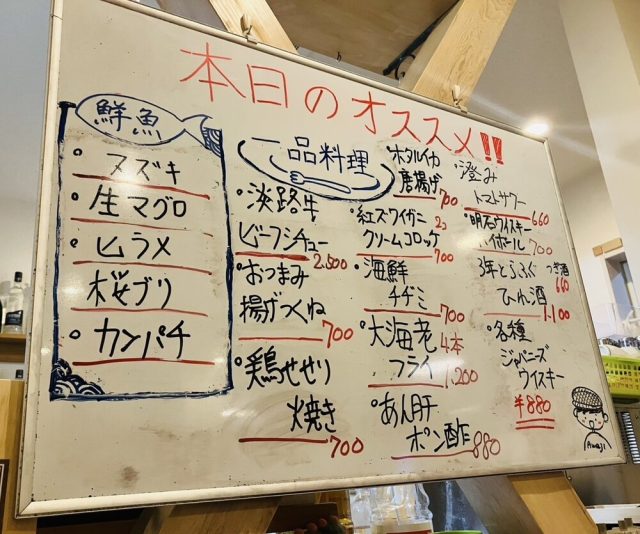 本日のオススメ!!
鮮魚
・スズキ
・生マグロ
・ヒラメ
・桜ブリ
・カンパチ
一品料理
・淡路牛
ビーフシチュー
2,500
・おつまみ
揚げつくね
700
・鶏せせり
焼き
700
・ホタルイカ
唐揚げ
700
・紅ズワイガニ 2コ
クリームコロッケ
700
・海鮮
チヂミ
700
・大海老 4本
フライ
1,200
・あん肝
ポン酢 880
・澄み
トマトサワー
660
・明石ウイスキー
ハイボール 700
・3年とらふぐ つぎ酒
660
ひれ酒
1,100
・各種
ジャパニーズ
ウイスキー
¥880
Awaji